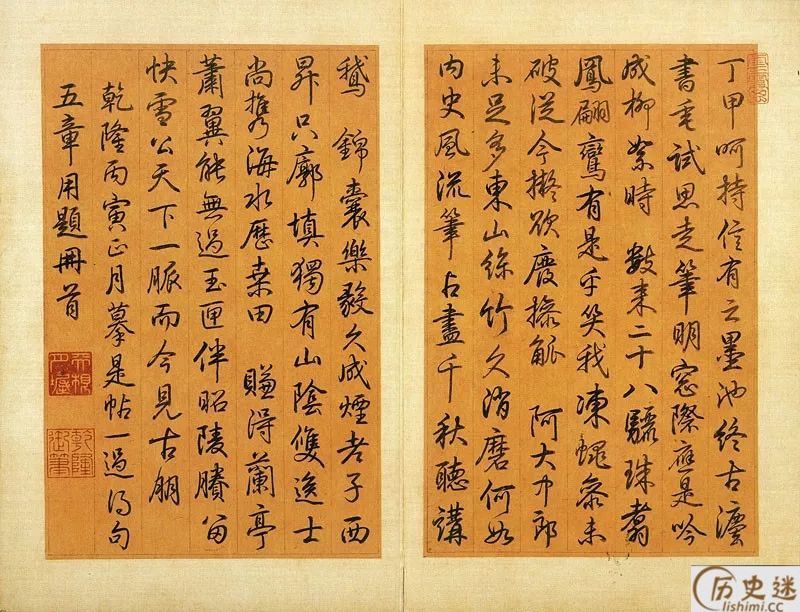 丁甲呵持信有之墨池終古瀍
書垂試思走筆明窓際應是吟
成柳絮時　數來二十八驪珠翥
鳳翩鸞有是乎笑我凍蠅參未
破從今擬欲廢操觚　阿大中郎
未足多東山絲竹久消磨何如
內史風流筆占盡千秋聽講
鵝　錦囊樂毅久成煙老子西
昇只廓填獨有山陰雙逸士
尚攜海水歷桑田　賺得蘭亭
蕭翼能無過玉匣伴昭陵賸留
快雪公天下一脈而今見古朋
乾隆丙寅正月摹是帖一過得句
五章用題冊首
乾隆
御筆
历史迷
lishimi.cc